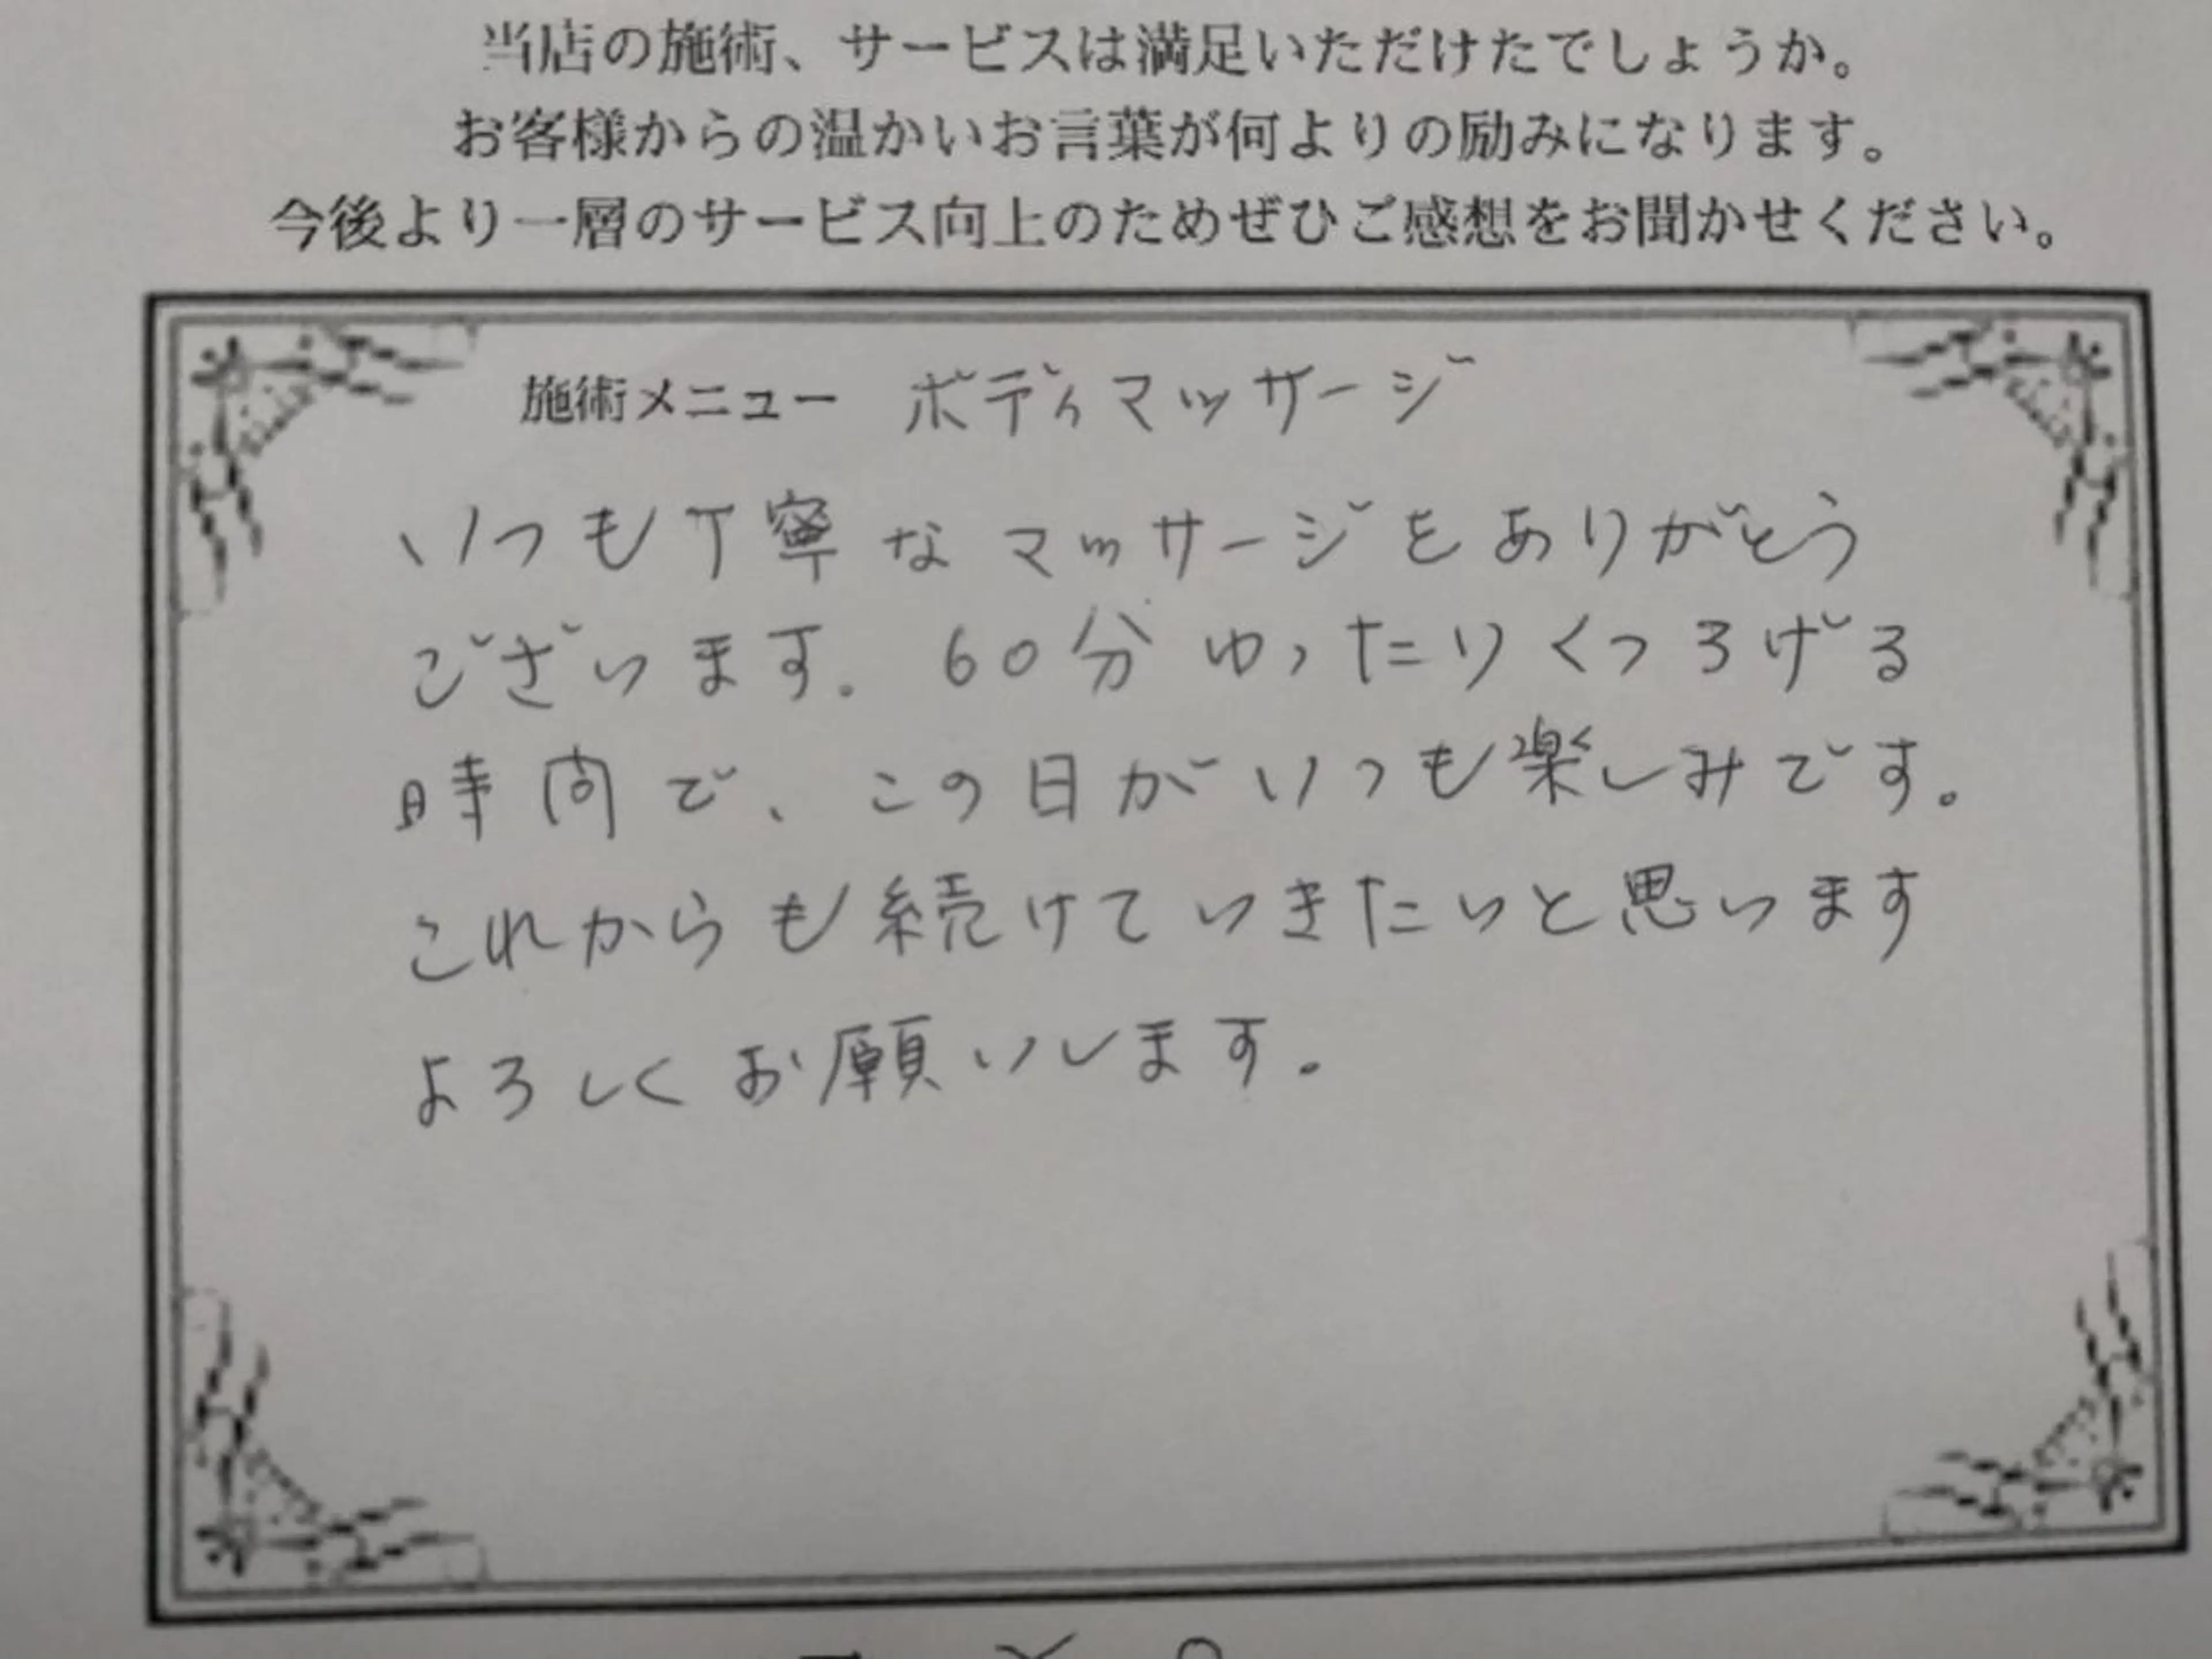 当店の施術、サービスは満足いただけたでしょうか。
お客様からの温かいお言葉が何よりの励みになります。
今後より一層のサービス向上のためぜひご感想をお聞かせください。
施術メニュー ボディマッサージ
いつも丁寧なマッサージをありがとう
ございます。60分ゆったりくつろげる
時間で、この日がいつも楽しみです。
これからも続けていきたいと思います
よろしくお願いします。